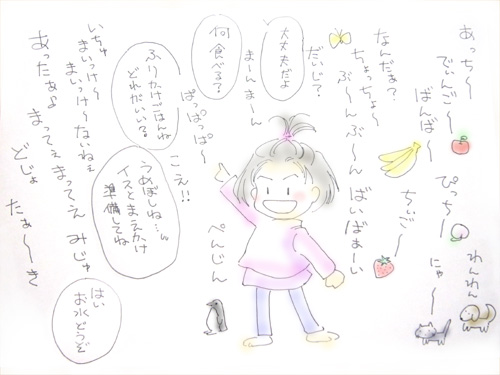 あっち〜
でぃんご〜
ばんば〜
ぴっち〜
わんわん
にゃ〜
ちぃご〜
なんだぁ?
ちょっちょ〜
ぶ〜んぶ〜ん
ばいばぁーい
だいじ?
大丈夫だよ
まーんまーん
何食べる?
ぱっぱっぱ〜
ふりかけごはんね
どれがいい?
こえ!!
うめぼしね…
イスとまえかけ
準備してね
ぺんじん
いちゅ
まいっけ〜
まいっけ〜ないねェ
あったぁよ
まってぇまってえ
みじゅ
どじょ
たぁ〜き
はい
お水どうぞ